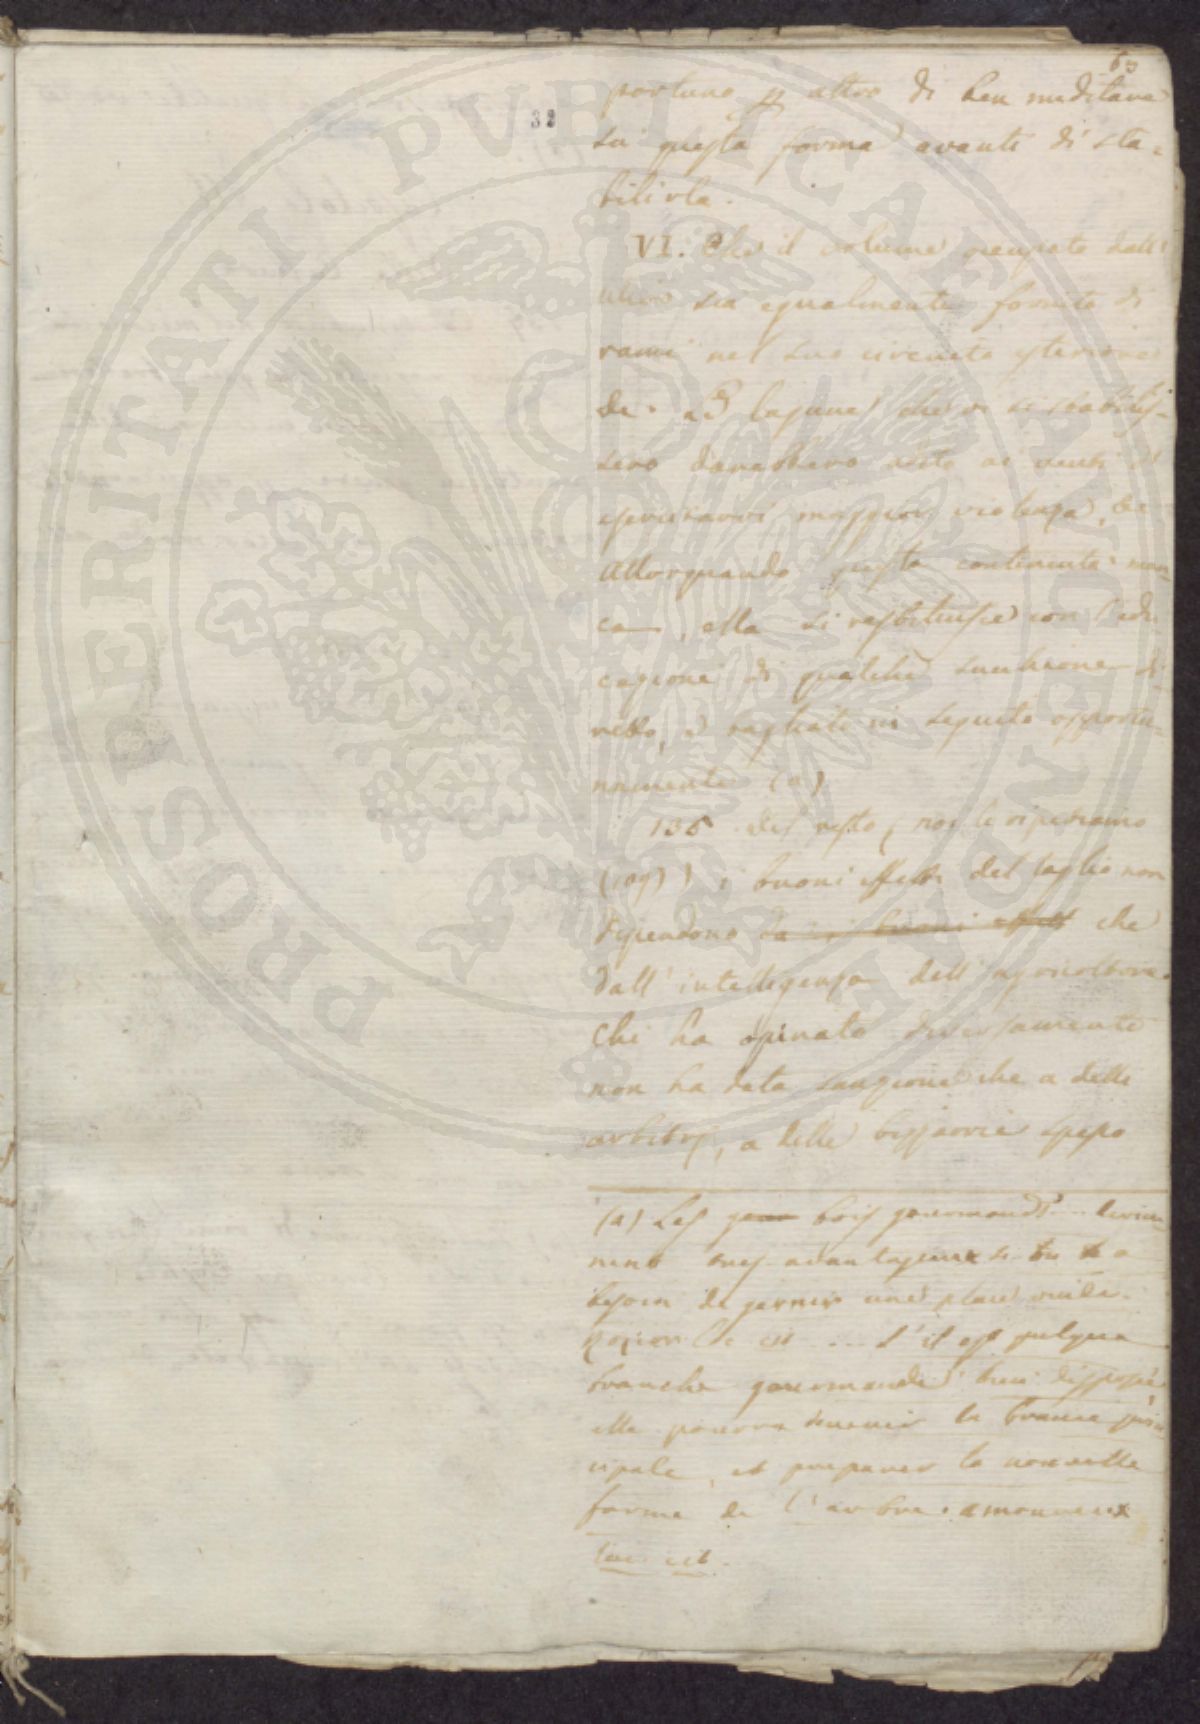 63
32
portuno p altro di ben meditare
su questa forma avanti di sta-
bilirla.
VI. Che il volume occupato dall'
ulivo sia egualmente fornito di
rami nel suo circuito esteriore
de. Le lagune che vi si stabilis-
sero darebbero adito ai venti d'
esercitarvi maggior violenza.
Allorquando questa continuità man-
ca, ella si restituisce con l'edu-
cazione di qualche succhione di-
retto, e tagliato in seguito opportu-
namente (a)
136 Del resto, noi lo ripetiamo
(109) i buoni effetti del taglio non
dipendono da i buoni effetti che
dall'intelligenza dell'agricoltore.
Chi ha opinato diversamente
non ha data sanzione che a delle
arbitrj, a delle bizzarrie spesso
(a) Les bois gourmands devien-
nent tres avantageux si tu a
besoin de garnir une place vuide.
Rozier l. cit .... S'il est quelque
branche gourmande bien disposée
elle pourra devenir la branche prin
cipale, et preparer la nouvelle
forme de l'arbre. amoureux
loc. cit.
PROSPERITATI PUBLICAE AUGENDAE